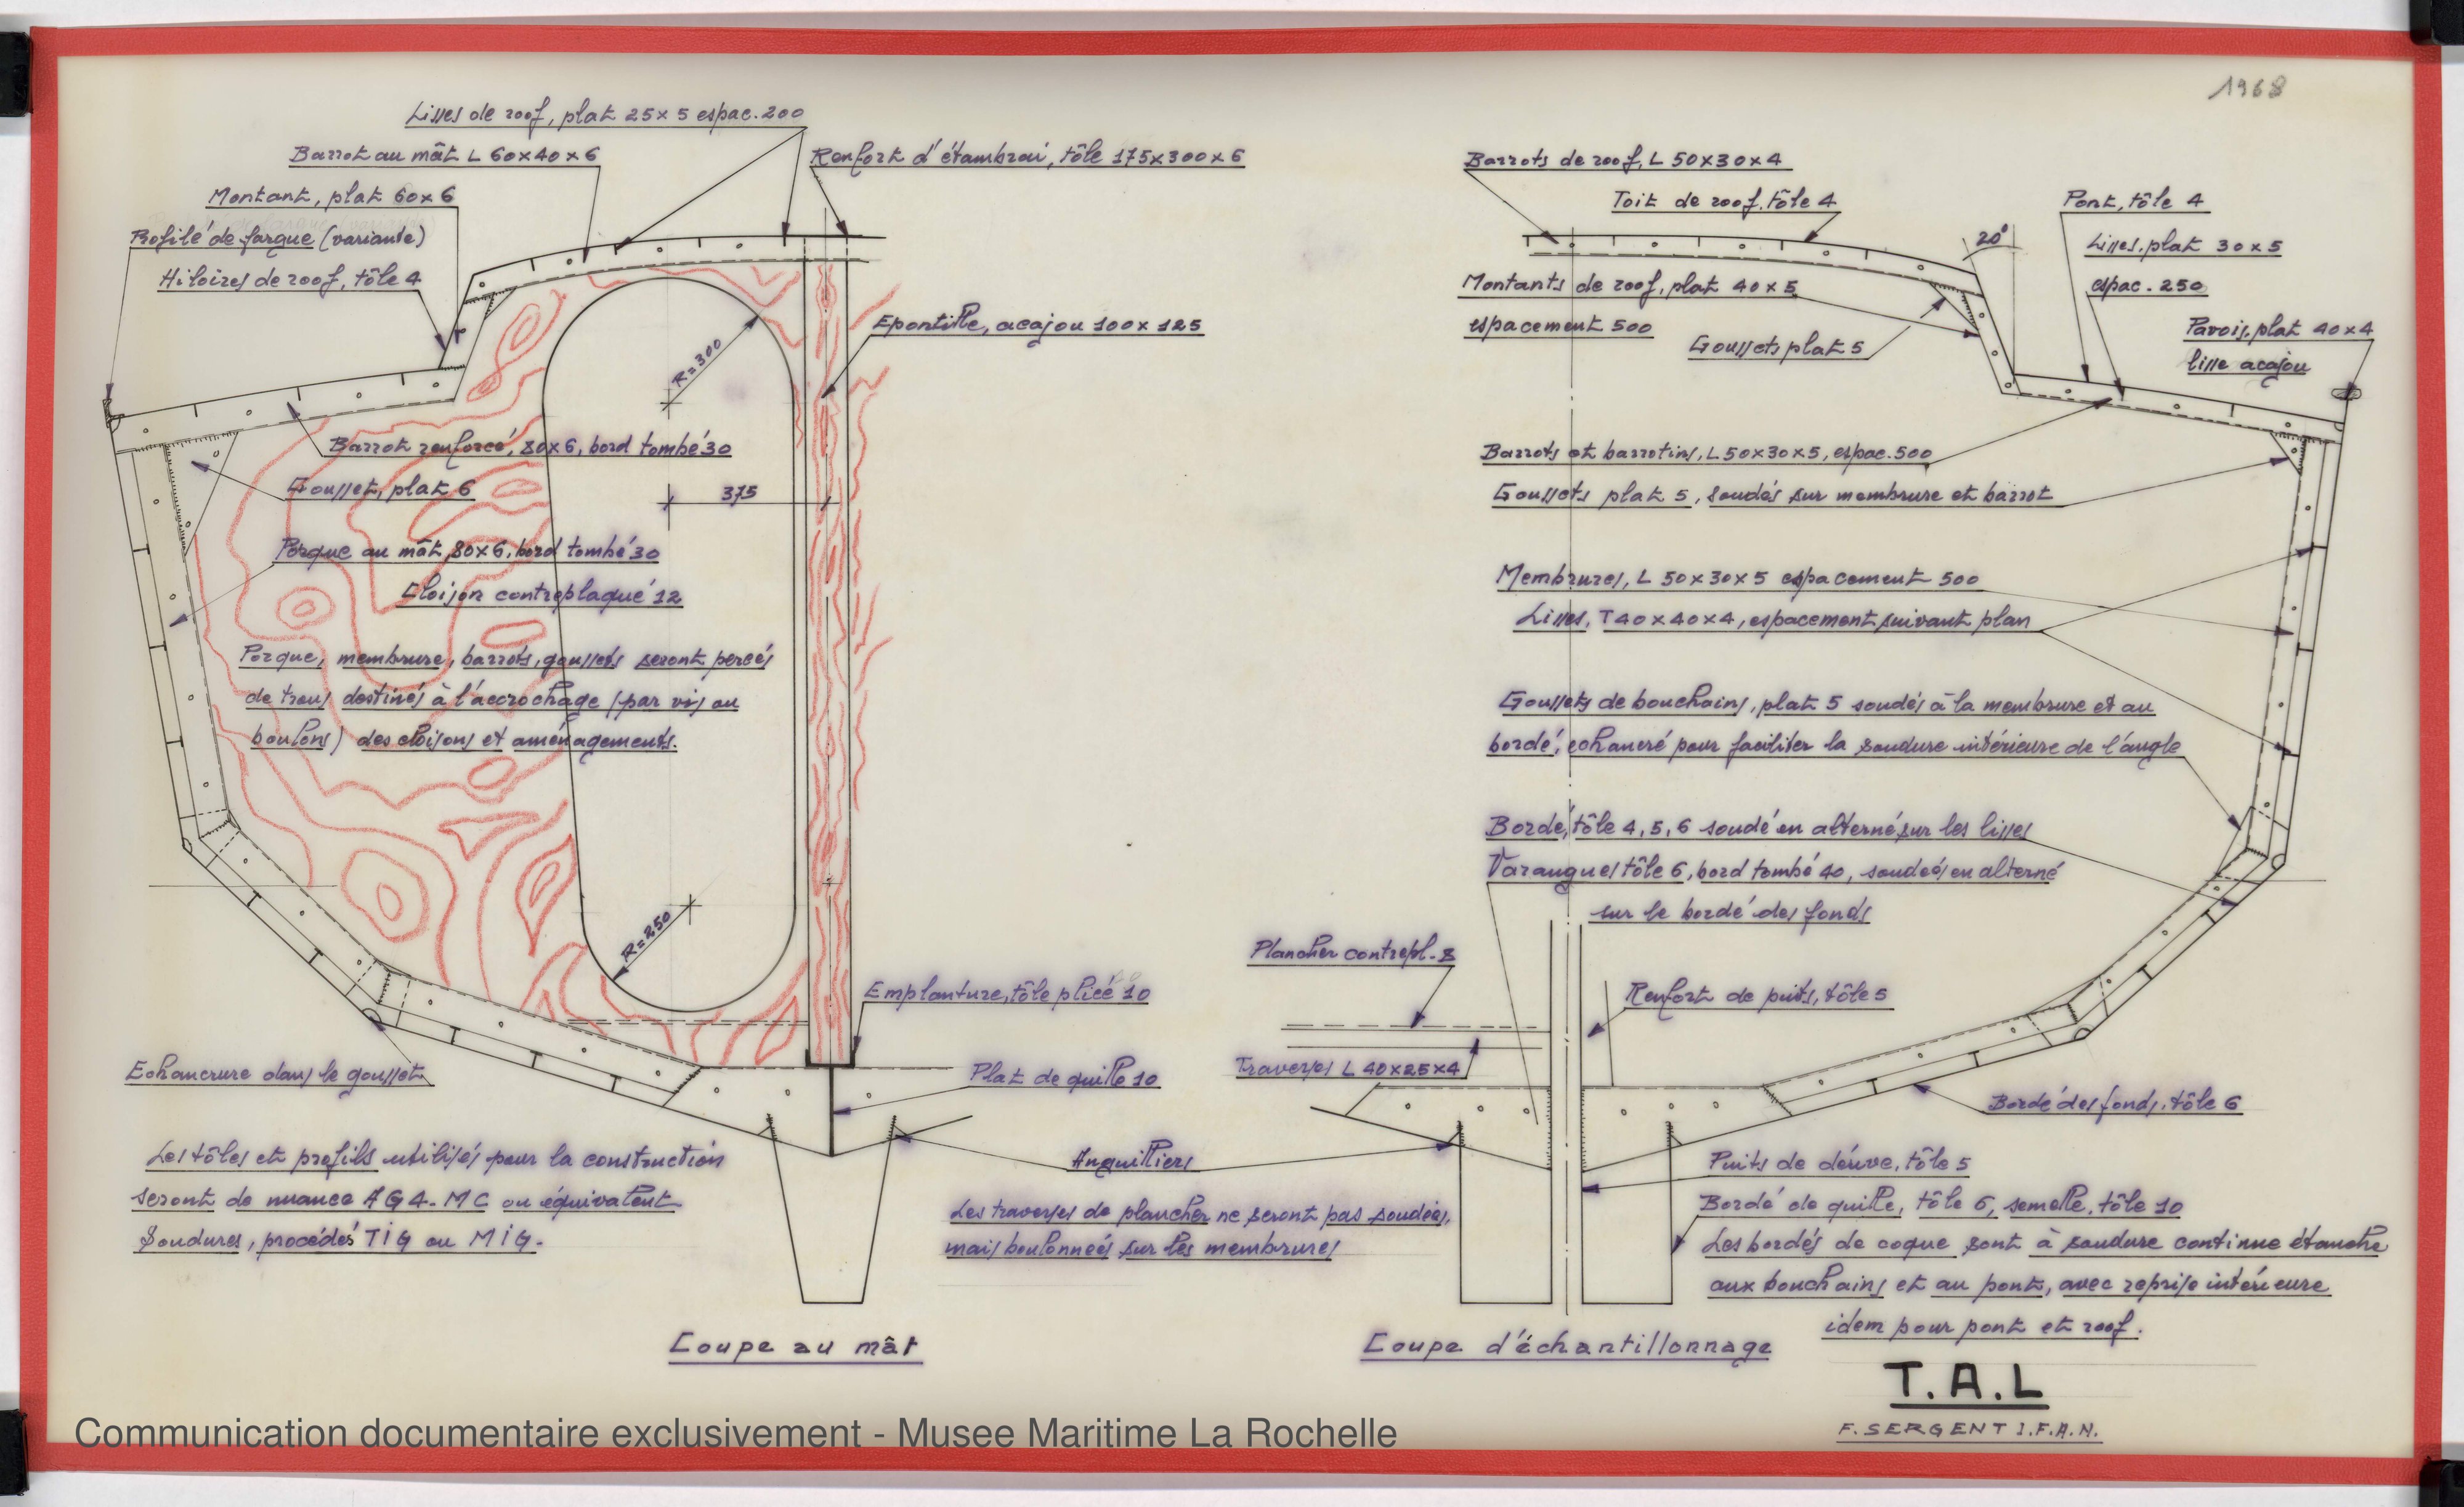 1968
Lisses de roof, plat 25x5 espac.200
Barrot au mât L 60x40x6
Renfort d'étambrai, tôle 175x300x6
Montant, plat 60x6
Profilé de fargue (variante)
Hiloires de roof, tôle 4
Epontille, acajou 100x125
R=300
Barrot renforcé, 80x6, bord tombé 30
Gousset, plat 6
375
Porque au mât, 80x6, bord tombé 30
Cloison contreplaqué 12
Porque, membrure, barrots, goussets seront percés
de trous destinés à l'accrochage (par vis ou
boulons) des cloisons et aménagements.
R=250
Emplanture, tôle pliée 10
Echancrure dans le gousset
Plat de quille 10
Anguillers
Les tôles et profils utilisés pour la construction
seront de nuance AG4-MC ou équivalent
Soudures, procédés TIG ou MIG.
Les traverses de plancher ne seront pas soudées,
mais boulonnées sur les membrures
Coupe au mât
Barrots de roof, L 50x30x4
Toit de roof, tôle 4
20°
Pont, tôle 4
Lisses, plat 30x5
espac. 250
Montants de roof, plat 40x5
espacement 500
Goussets plat 5
Pavois, plat 40x4
lisse acajou
Barrots et barrotins, L 50x30x5, espac.500
Goussets plat 5, soudés sur membrure et barrot
Membrures, L 50x30x5 espacement 500
Lisses, T 40x40x4, espacement suivant plan
Goussets de bouchains, plat 5 soudés à la membrure et au
bordé, echancré pour faciliter la soudure intérieure de l'angle
Bordé, tôle 4, 5, 6 soudé en alterné sur les lisses
Varangues tôle 6, bord tombé 40, soudées en alterné
sur le bordé des fonds
Plancher contrepl. 8
Renfort de puits, tôle 5
Traverses L 40x25x4
Bordé des fonds, tôle 6
Puits de dérive, tôle 5
Bordé de quille, tôle 6, semelle, tôle 10
Les bordés de coque sont à soudure continue étanche
aux bouchains et au pont, avec reprise intérieure
idem pour pont et roof.
Coupe d'échantillonnage
T.A.L
F. SERGENT I.F.A.N.
Communication documentaire exclusivement - Musee Maritime La Rochelle